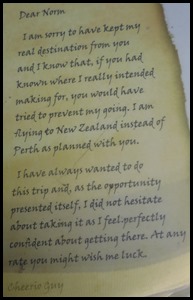 Dear Norm
I am sorry to have kept my
real destination from you
and I know that, if you had
known where I really intended
making for, you would have
tried to prevent my going. I am
flying to New Zealand instead of
Perth as planned with you.
I have always wanted to do
this trip and, as the opportunity
presented itself, I did not hesitate
about taking it as I feel perfectly
confident about getting there. At any
rate you might wish me luck.
Cheerio Guy